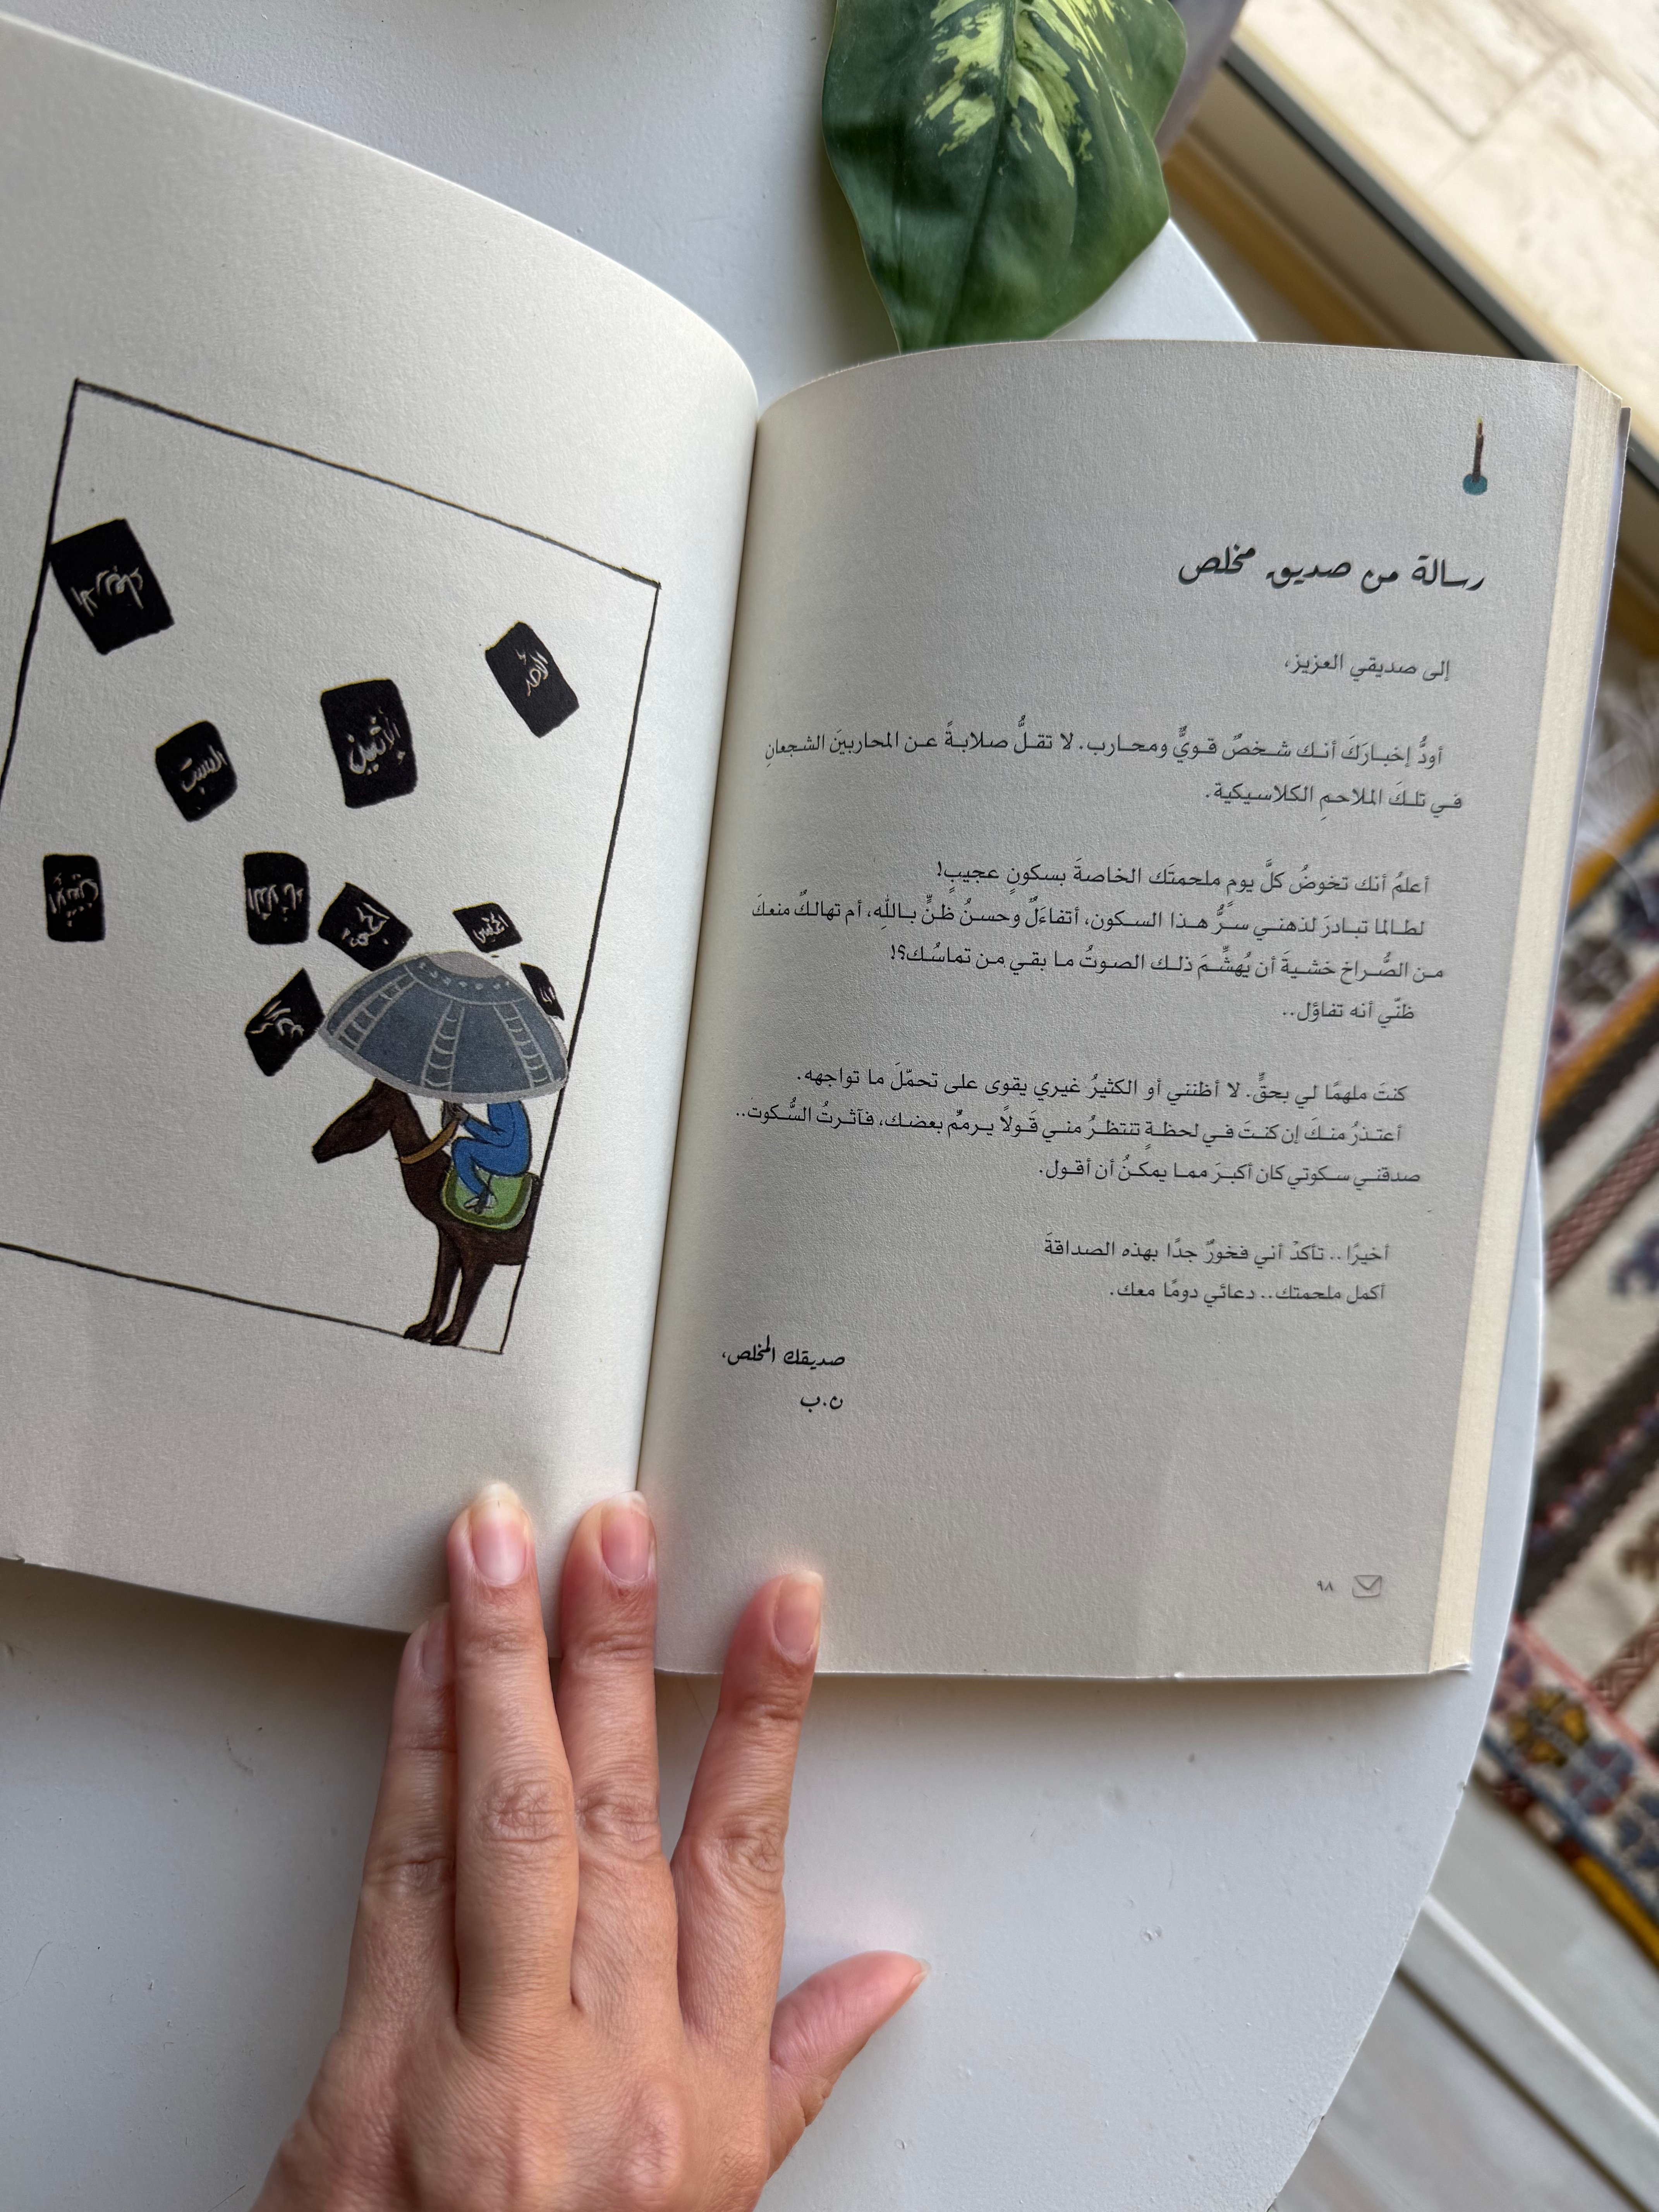 رسالة من صديق مخلص
إلى صديقي العزيز،
أودُّ إخبارَكَ أنك شخصٌ قويٌّ ومحارب. لا تقلُّ صلابةً عن المحاربينَ الشجعانِ
في تلكَ الملاحمِ الكلاسيكية.
أعلمُ أنك تخوضُ كلَّ يومٍ ملحمتَك الخاصةَ بسكونٍ عجيبٍ!
لطالما تبادرَ لذهني سرُّ هذا السكون، أتفاءَلٌ وحسنُ ظنٍّ باللهِ، أم تهالكٌ منعكَ
من الصُّراخ خشيةَ أن يُهشِّمَ ذلك الصوتُ ما بقي من تماسُك؟!
ظنّي أنه تفاؤل..
كنتَ ملهمًا لي بحقٍّ. لا أظنني أو الكثيرُ غيري يقوى على تحمّلَ ما تواجهه.
أعتذرُ منكَ إن كنتَ في لحظةٍ تنتظرُ مني قَولًا يرممٌ بعضك، فآثرتُ السُّكوت..
صدقني سكوتي كان أكبرَ مما يمكنُ أن أقول.
أخيرًا.. تأكدْ أني فخورٌ جدًا بهذه الصداقةَ
أكمل ملحمتك.. دعائي دومًا معك.
صديقك المخلص،
ن.ب
٩٨
الأحد
الأربعاء
الإثنين
السبت
الخميس
الجمعة
الثلاثاء
الإثنين